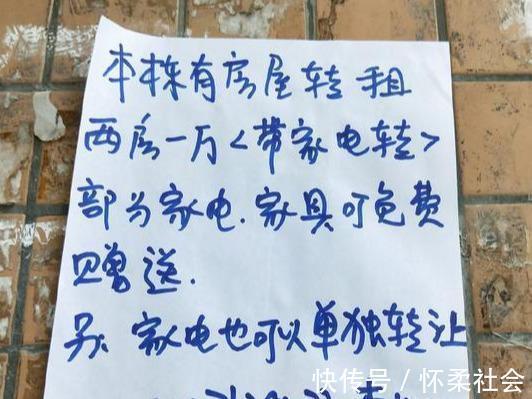 本栋有房屋转租
两房一厅<带家电转>
部分家电.家具可免费
赠送.
另 家电也可以单独转让
快传号/怀柔社会